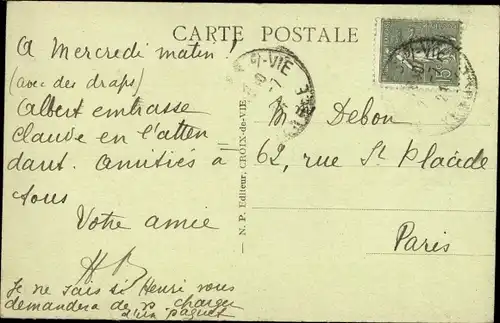 CARTE POSTALE
A Mercredi matin!
(avec des draps)
Albert embrasse
Claude en l'atten
dant. Amitiés à
tous
Votre amie
Je ne sais si Henri vous
demandera de charger
d'un paquet
N. P. Editeur, CROIX-de-VIE
M Debon
62, rue St Placide
Paris
VIE
VIE
15